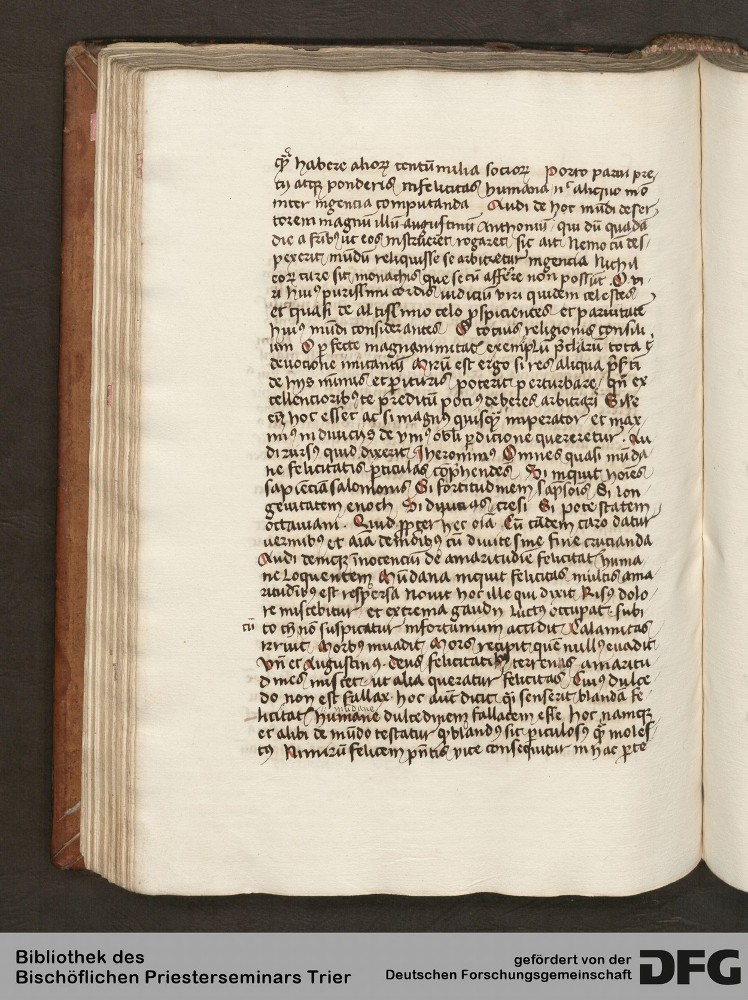 qᷓ habere alioꝝ centū milia socioꝝ Porro parui pre
cij atqꝫ ponderis infelicitas humana nͨ aliquo mō
inter ingencia computanda Audi de hoc mūdi deser
torem magnū illū augustinū Anthoniū qui dū quadā
die a fribꝯ ut eos instrueret rogaret sic ait Nemo cū des
pexerit mūdū reliquisse se arbitretur ingencia Nichil
eoꝝ cure sit monachis que secū afferre non possūt O vi
ri huiꝯ purissimi cordis iudiciū viri quidem celestes
et quasi de altissimo celo ꝑspicientes et paruitatē
huiꝯ mūdi considerantes O tocius religionis consili
um O ꝑfecte magnanimitatis exemplū p̄clarū tota
deuocione imitantū Mirū est ergo si res aliqua
de hijs nimis et ꝑituris poterit perturbare qn̄ ex
cellencioribꝯ te preditū pociꝯ debes arbitrari Sile
em̄ hoc esset ac si magnꝰ quisqꝫ imperator et max
imꝯ in diuicijs de vniꝯ obli ꝑdicione quereretur Au
di rursꝯ quid dixerit Iheronimꝯ Omnes quasi mūda
ne felicitatis ꝑticulas cōphendes Si inquit hoīes
sapiēciā salomonis Si fortitudinem sapsōis Si lon
geuitatem enoch Si diuicias cresi Si potestatem
octauiani Quid ꝓpter hec oīa Cū tādem caro datur
vermibꝯ et aīa demōibꝯ cū diuite sine fine crucianda
Audi deniqꝫ īnocenciū de amaritudīe felicitatis huma
ne loquentem Mūdana inquit felicitas multis ama
ritudībꝯ est resꝑsa Nouit hoc ille qui dixit Risꝯ dolo
re miscebitur et extrema gaudij luctus occupat subi
cū to ch nō suspicatur infortunium accidit Calamitas
irruit Morbꝯ inuadit Mors recipit quē nullꝯ euadit
Vn̄ et Augustinꝯ deus felicitatibꝯ terrenas amaritu
dines miscet ut alia queratur felicitas Cuiꝯ dulce
do non est fallax hoc aūt dicit qi senserit blandā fe
licitatis humane mūdane dulcedinem fallacem esse hoc namqꝫ
et alibi de mūdo testatur qꝫ blandꝯ sit ꝑiculosꝯ qᷓ moles
tꝯ Nimirū felicem pn̄tis vite consequitur in hac ꝑte
Bibliothek des
Bischöflichen Priesterseminars Trier
gefördert von der
Deutschen Forschungsgemeinschaft
DFG